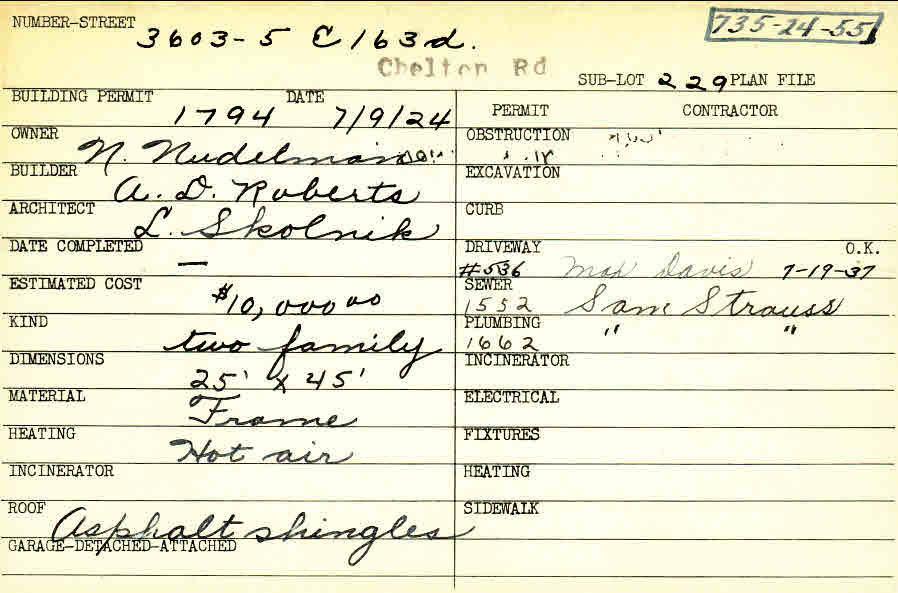 NUMBER-STREET 3603-5 E 163d. 735-24-55
Chelton Rd
SUB-LOT 229 PLAN FILE
BUILDING PERMIT 1794 DATE 7/9/24
PERMIT CONTRACTOR
OWNER N. Nudelman
OBSTRUCTION
BUILDER A. D. Roberts
EXCAVATION
ARCHITECT L. Skolnik
CURB
DATE COMPLETED —
DRIVEWAY #536 Max Davis O.K. 7-19-37
ESTIMATED COST $10,000 00
SEWER 1552 Sam Strauss
KIND two family
PLUMBING 1662 " "
DIMENSIONS 25' x 45'
INCINERATOR
MATERIAL Frame
ELECTRICAL
HEATING Hot air
FIXTURES
INCINERATOR
HEATING
ROOF Asphalt shingles
SIDEWALK
GARAGE-DETACHED-ATTACHED